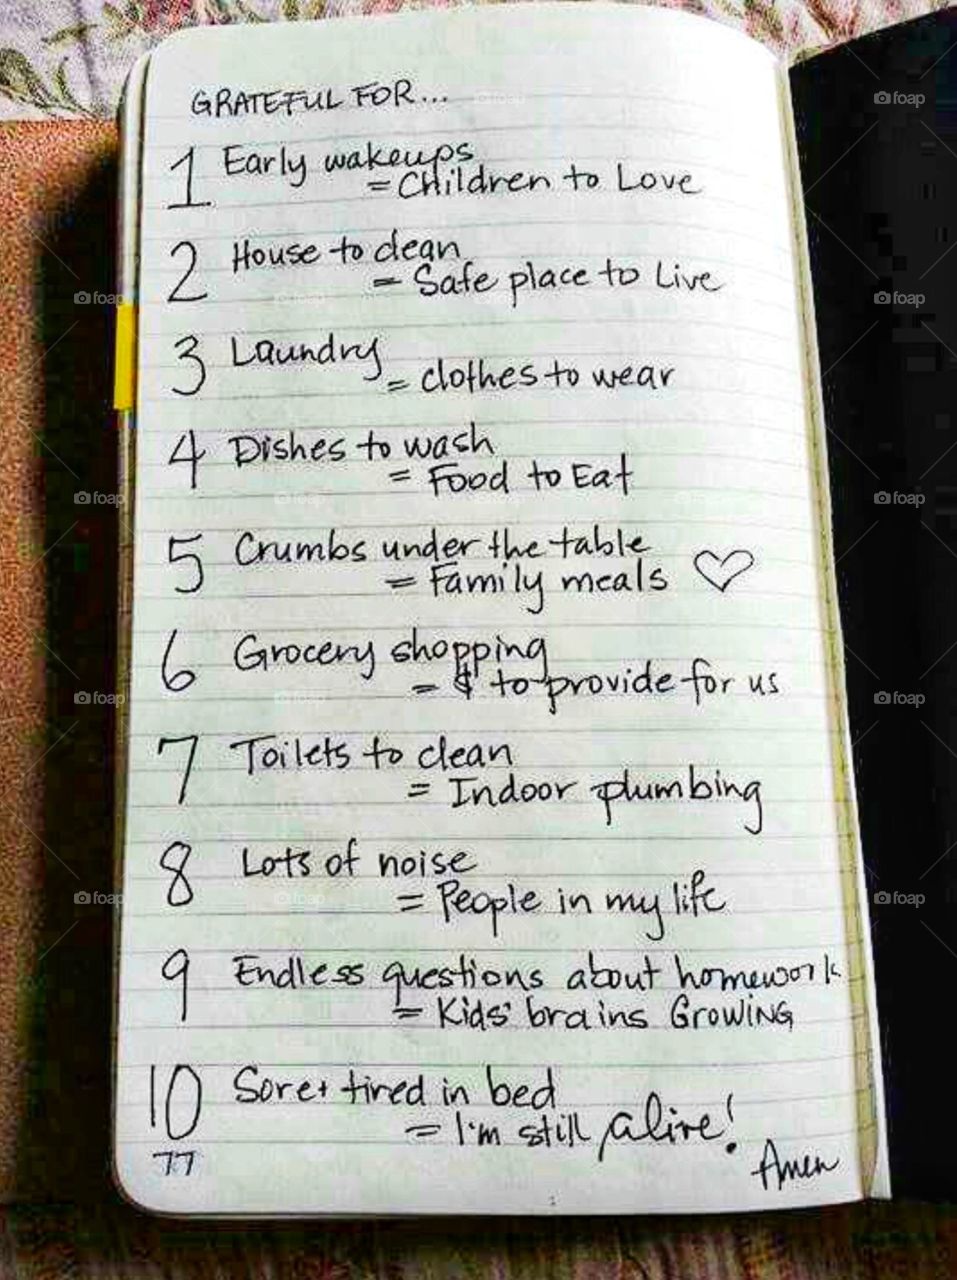 GRATEFUL FOR...
1 Early wakeups
= Children to Love
2 House to clean
= Safe place to Live
3 Laundry
= clothes to wear
4 Dishes to wash
= Food to Eat
5 Crumbs under the table
= Family meals ♡
6 Grocery shopping
= $ to provide for us
7 Toilets to clean
= Indoor plumbing
8 Lots of noise
= People in my life
9 Endless questions about homework
= Kids' brains GROWING
10 Sore + tired in bed
= I'm still alive!
77
Amen
foap
foap
foap
foap
foap
foap
foap
foap
foap
foap